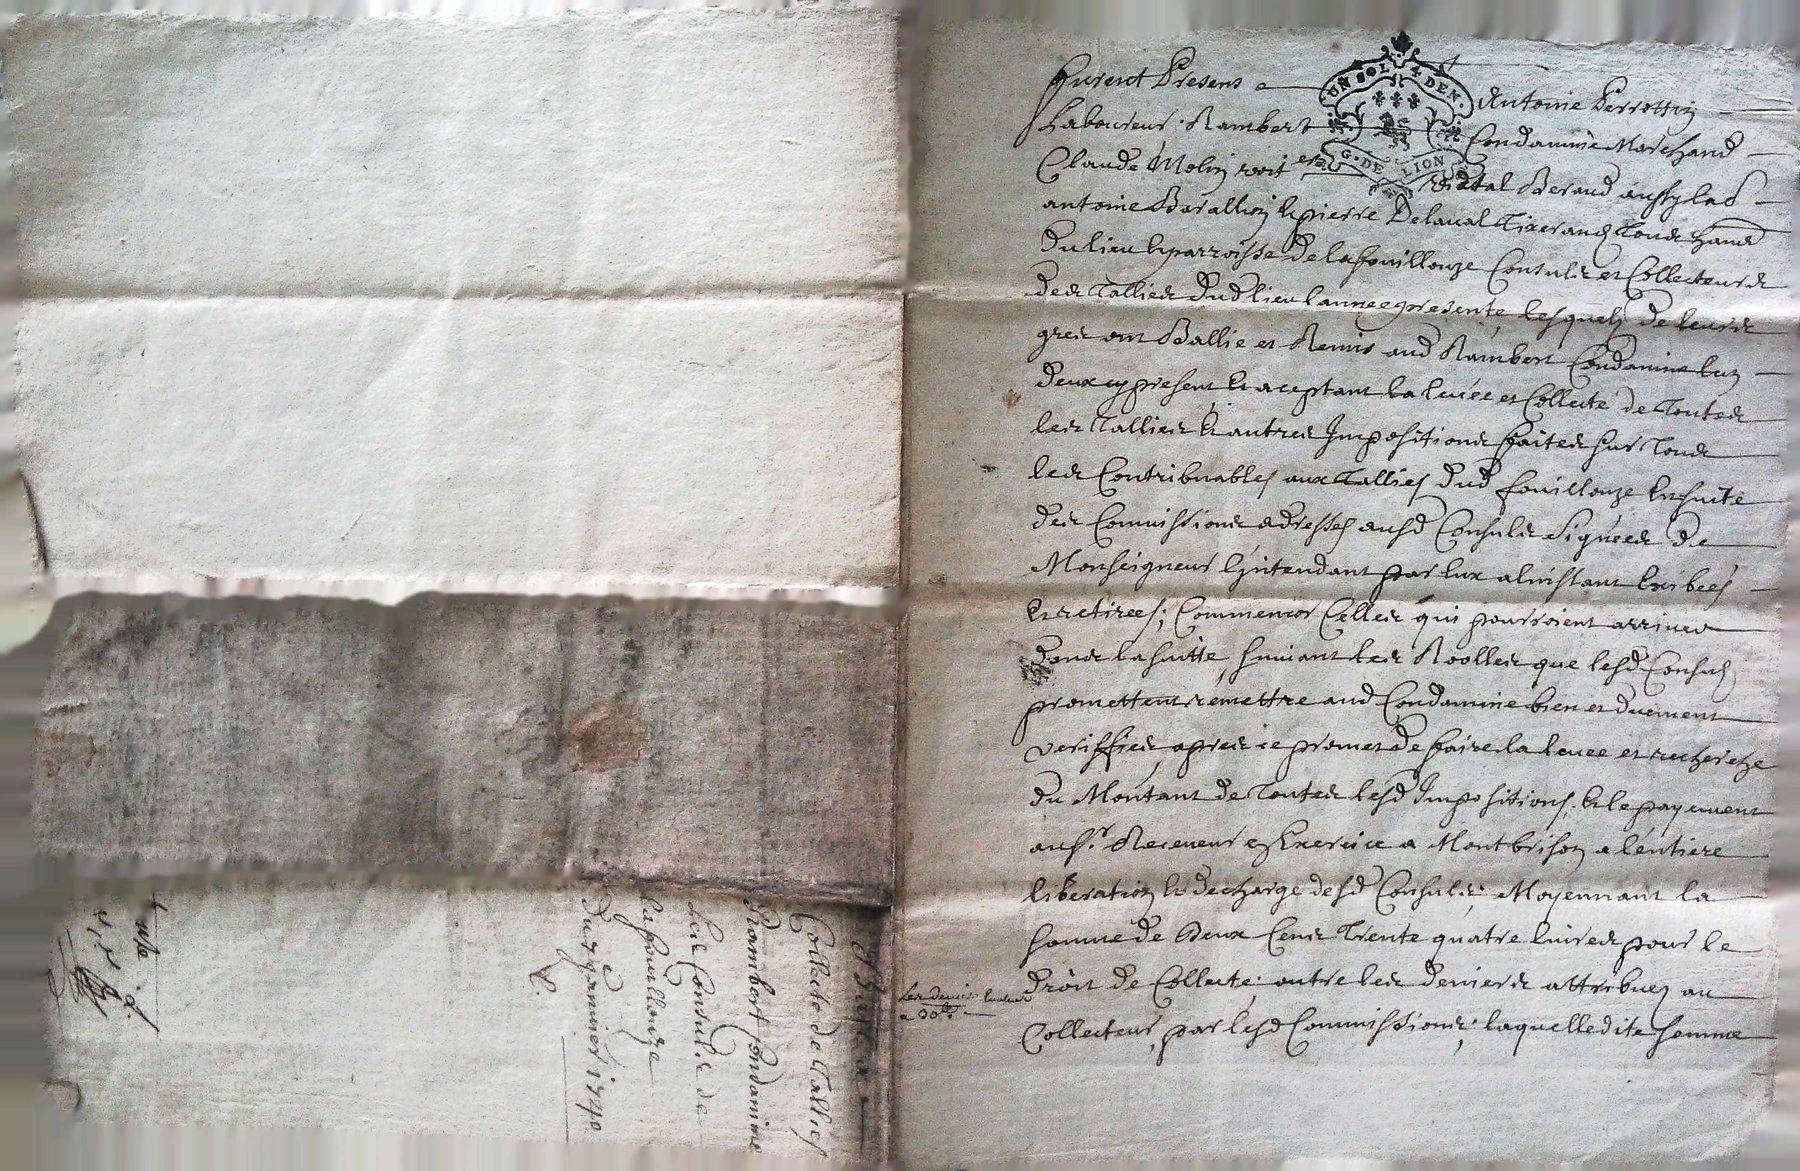 furent Presens Antoine Perrottin
Laboureur Rambert Condamine Marchand
Claude Molin Vidal Beraud aussy lab
antoine Baralhon & pierre Delaual Tixerand Tous hans
Du lieu & parroisse de lafouillouze Consuls et Collecteurs
des Tallies dud lieu lannee presente, lesquels de leurs
gres ont Ballie et Remis aud Rambert Condamine lun
deux cy present & aceptant la leuée et Collecte de Toutes
les Tallies & autres Impositions faites sur Tous
les Contribuables aux Tallies dud fouillouze Ensuite
des Commissions adresses ausd Consuls Signées de
Monseigneur Lintendant par Eux a linstant Exibées
& retirees; Comme celles qui pourroient arriuer
dans la suitte, suiuant les Roolles que lesd Consuls
promettent remettre aud Condamine bien et duement
veriffies, apres ce promet de faire la leuee et recherche
du Montant de Toutes lesd Impositions, & le payement
au sr. Receueur en Exercice a Montbrison a lentiere
liberation & decharge desd Consuls; Moyennant la
somme de Deux Cens Trente quatre liures pour le
Droit de Collecte, outre les deniers attribues au
Collecteur, par lesd Commissions; laquelledite somme
UN SOL 4 DEN.
G. DE LION
Les deniers
a 30lt
Collecte de Tallies
Rambert Condamine
Les Consuls de
lafouillouze
Du janvier 1740